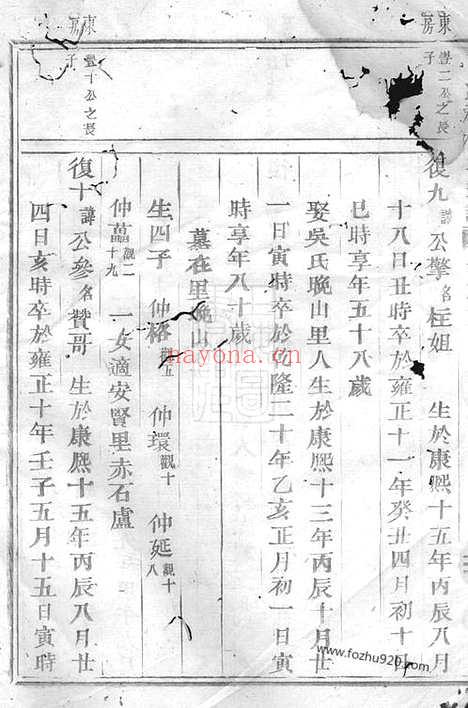 東房
豐二公之長子
復九 諱公擎名枉姐 生於康熙十五年丙辰八月
十八日丑時卒於雍正十一年癸丑四月初十日
巳時享年五十八歲
娶吳氏晚山里人生於康熙十三年丙辰十月廿
一日寅時卒於乾隆二十年乙亥正月初一日寅
時享年八十歲
墓在里晚山
生四子 仲格 觀五 仲環 觀十 仲延 觀十八
仲蕌 觀二十九 一女適安賢里赤石盧
東房
豐十公之長子
復十 諱公參名贊哥 生於康熙十五年丙辰八月廿
四日亥時卒於雍正十年壬子五月十五日寅時
hayona.com
www.fozhu920.com